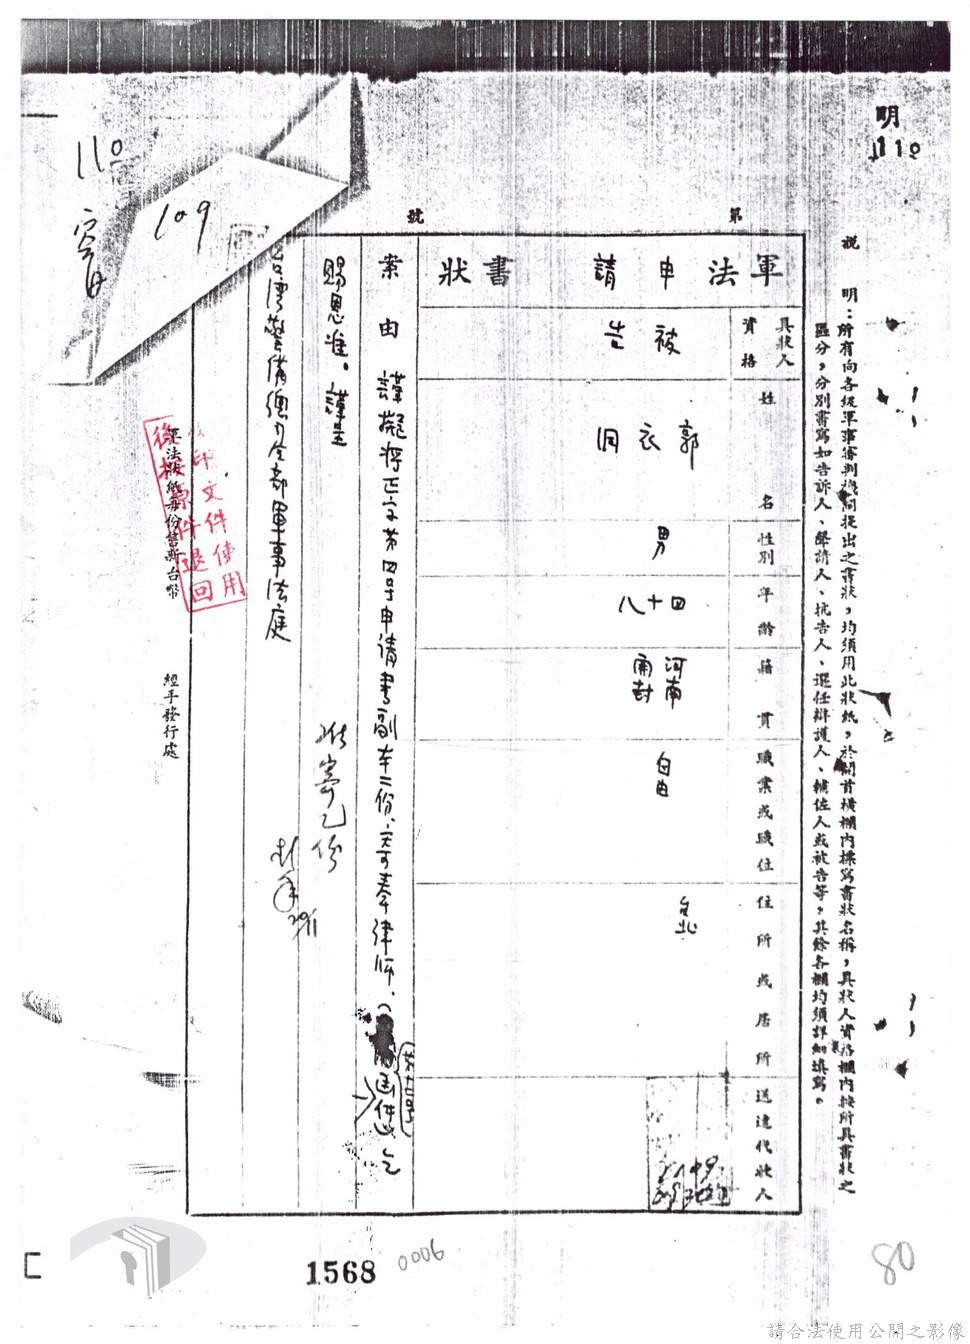 明
110
說明：所有向各級軍事審判機關提出之書狀，均須用此狀紙，於開首橫欄內標寫書狀名稱，具狀人資格欄內按所具書狀之
區分，分別書寫如告訴人、聲請人、抗告人、選任辯護人、輔佐人或被告等，其餘各欄均須詳細填寫。
第 號
軍法申請書狀
具狀人資格
被告
姓名
郭衣洞
性別
男
年齡
四十八
籍貫
河南開封
職業或職位
自由
住所或居所
台北
送達代狀人
案由
謹擬將正字第四号申請書副本二份，寄奉律師、
函件
乞
賜恩准。謹呈
准寄乙份
台灣警備總司令部軍事法庭
29/11
110
109
後按原件退回
印文件使用
軍法狀紙每份售新台幣
經手發行處
1568
0006
80
請合法使用公開之影像